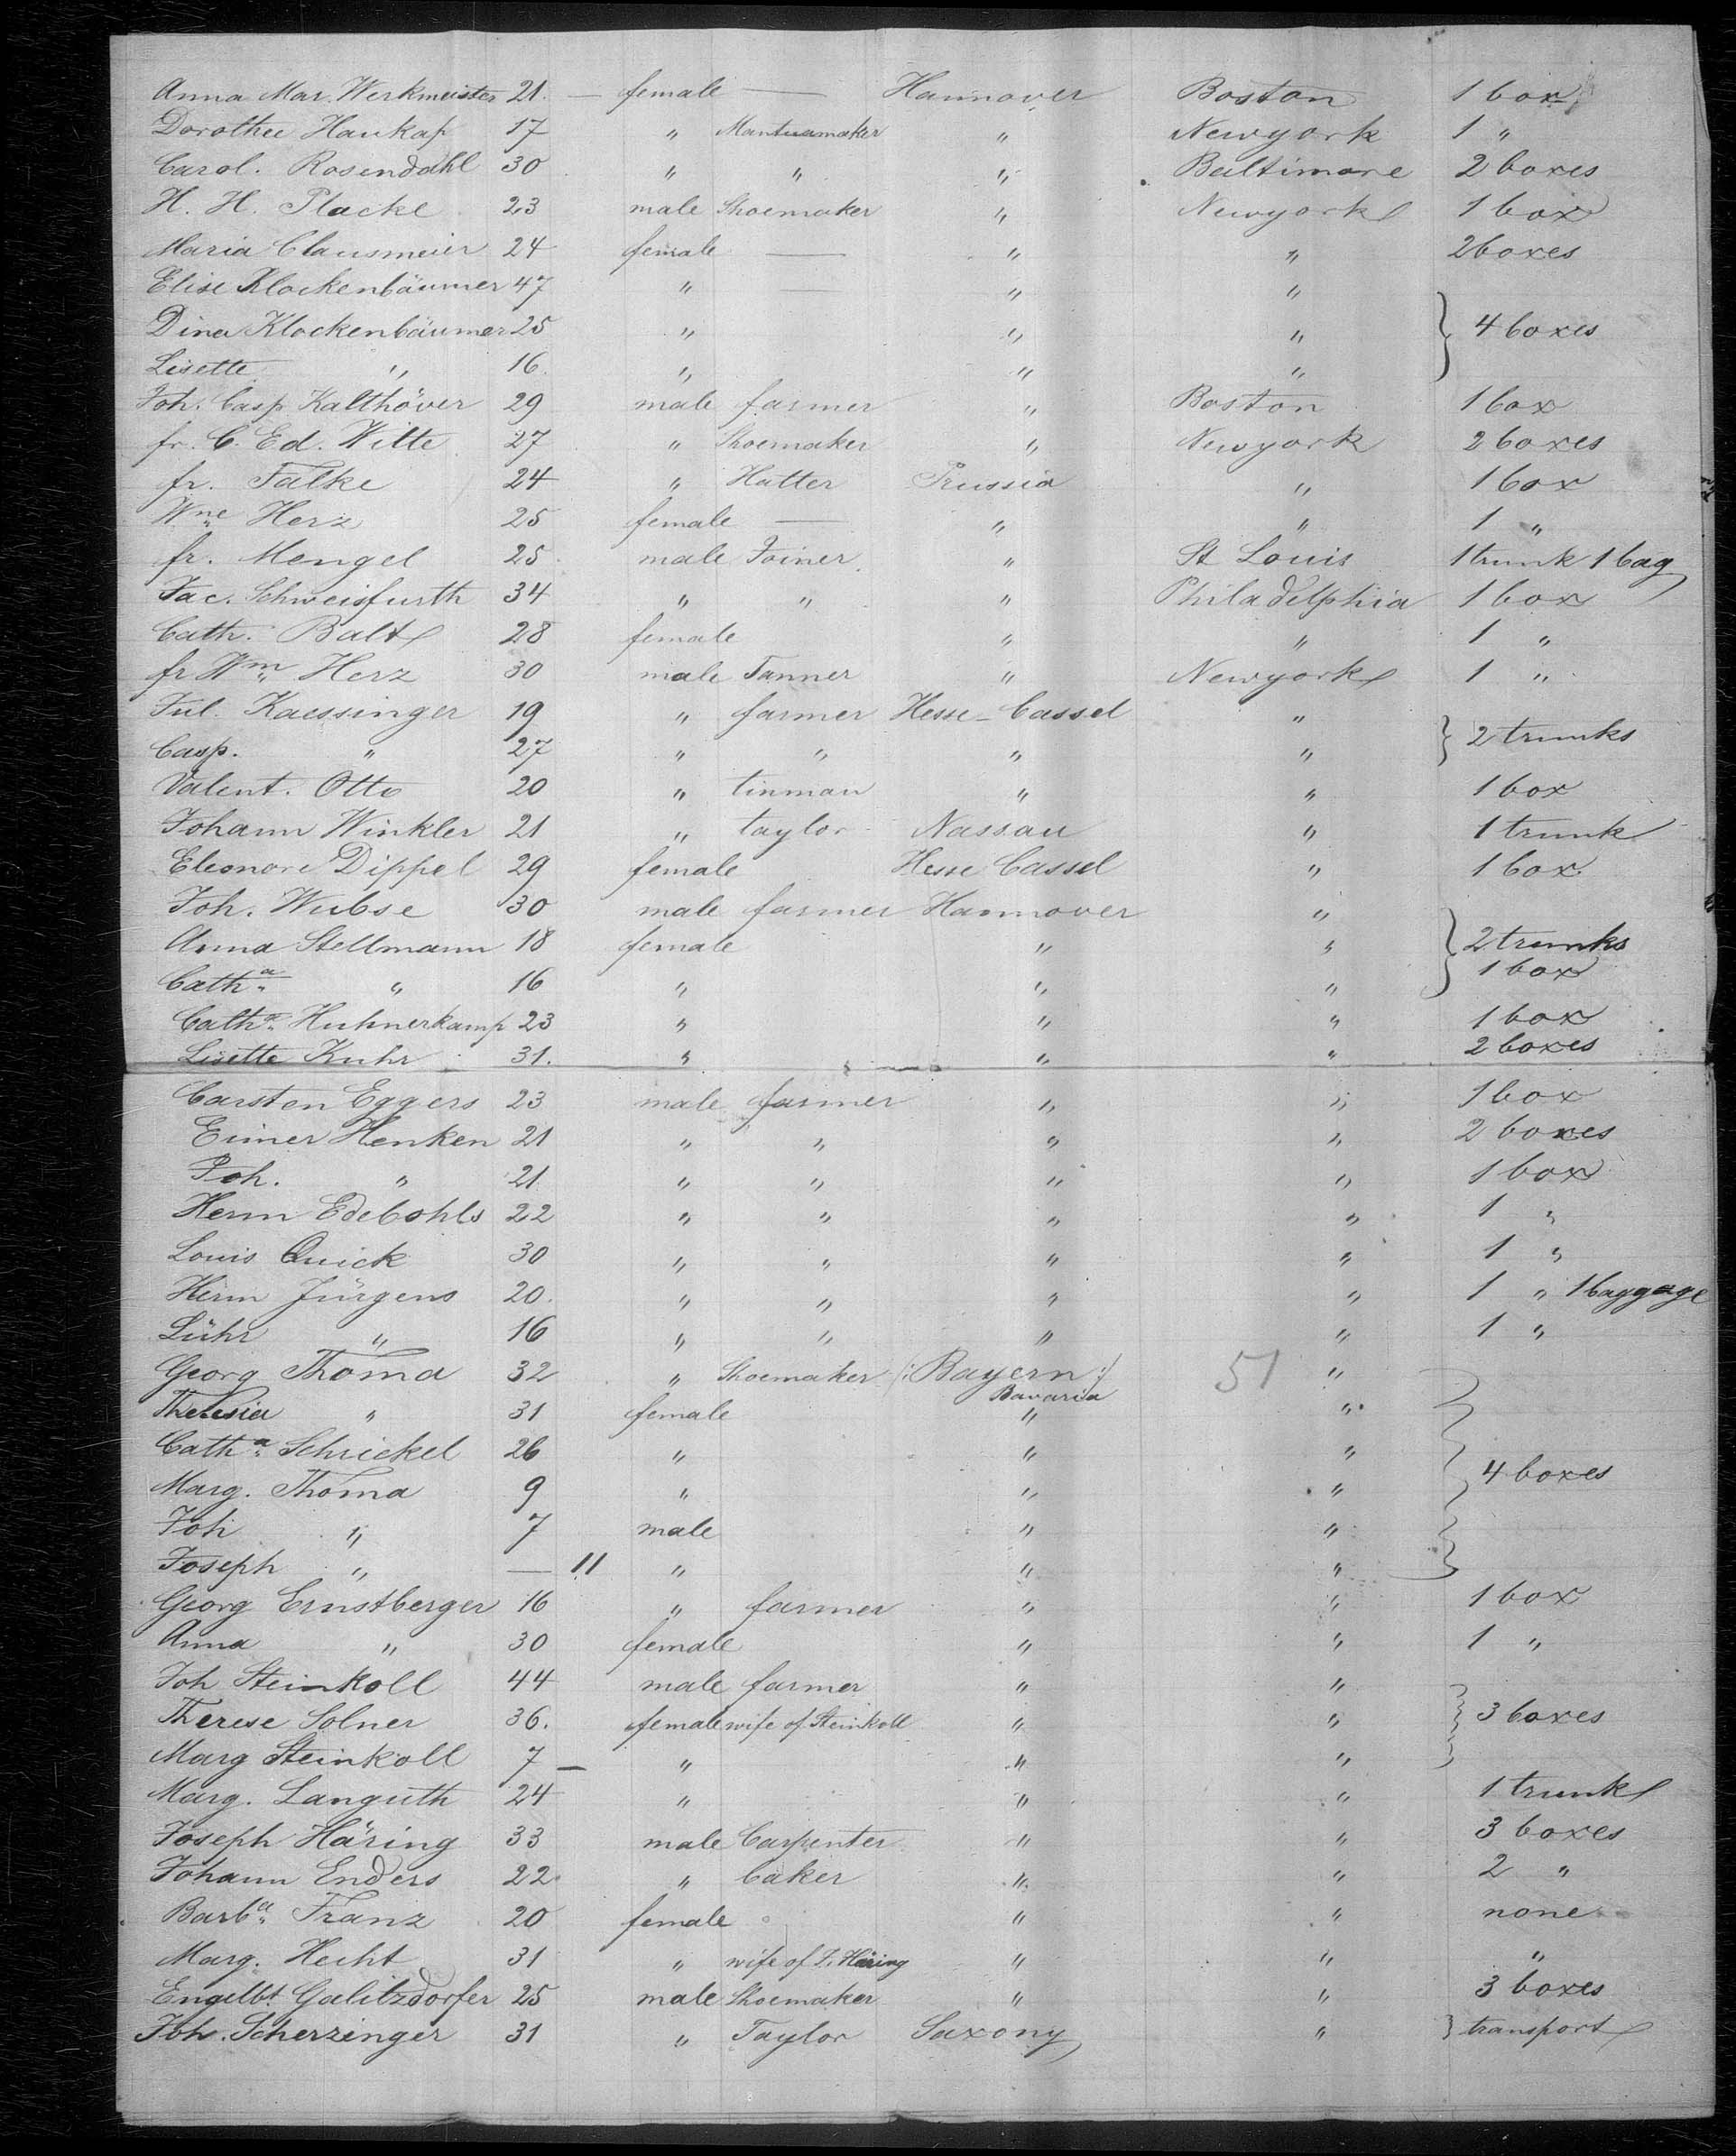 Anna Mar. Werkmeister 21. — female — Hannover Boston 1 box
Dorothee Haukap 17 " Mantuamaker " Newyork 1 "
Carol. Rosendahl 30 " " " Baltimore 2 boxes
H. H. Placke 23 male Shoemaker " Newyork 1 box
Maria Clausmeier 24 female — " " 2 boxes
Elise Klockenbäumer 47 " — " "
Dina Klockenbäumer 25 " " " } 4 boxes
Lisette " 16. " " "
Joh. Casp Kalthöver 29 male farmer " Boston 1 box
fr. C. Ed. Witte 27 " Shoemaker " Newyork 2 boxes
fr. Falke 24 " Hatter Prussia " 1 box
Wne Herz 25 female — " " 1 "
fr. Mengel 25 male Joiner. " St Louis 1 trunk 1 bag
Jac. Schweisfurth 34 " " " Philadelphia 1 box
Cath. Balt 28 female " " 1 "
fr Wm Herz 30 male Tanner " Newyork 1 "
Jul. Kaessinger 19 " farmer Hesse-Cassel "
Casp. " 27 " " " " } 2 trunks
Valent. Otto 20 " tinman " " 1 box
Johann Winkler 21 " taylor Nassau " 1 trunk
Eleonore Dippel 29 female Hesse Cassel " 1 box
Joh. Wubse 30 male farmer Hannover "
Anna Stellmann 18 female " " } 2 trunks
Catha " 16 " " " 1 box
Catha Huhnerkamp 23 " " " 1 box
Lisette Kuhr 31. " " " 2 boxes
Carsten Eggers 23 male farmer " " 1 box
Eimer Henken 21 " " " " 2 boxes
Joh. " 21 " " " " 1 box
Herm Edebohls 22 " " " " 1 "
Louis Quick 30 " " " " 1 "
Herm Jürgens 20. " " " " 1 " 1 baggage
Lühr " 16 " " " " 1 "
Georg Thoma 32 " Shoemaker (: Bayern :) 51 "
Bavaria
Theresia " 31 female " "
Catha Schrickel 26 " " "
Marg. Thoma 9 " " " } 4 boxes
Joh " 7 male " "
Joseph " — 11 " " "
Georg Ernstberger 16 " farmer " " 1 box
Anna " 30 female " " 1 "
Joh Steinkoll 44 male farmer " "
Therese Solner 36. female wife of Steinkoll " " } 3 boxes
Marg Steinkoll 7 — " " "
Marg. Languth 24 " " " 1 trunk
Joseph Häring 33 male Carpenter " " 3 boxes
Johann Enders 22 " baker " " 2 "
Barba Franz 20 female " " none
Marg. Hecht 31 " wife of J. Häring " " "
Engelbt Galitzdorfer 25 male Shoemaker " " 3 boxes
Joh. Scherzinger 31 " Taylor Saxony " } transport